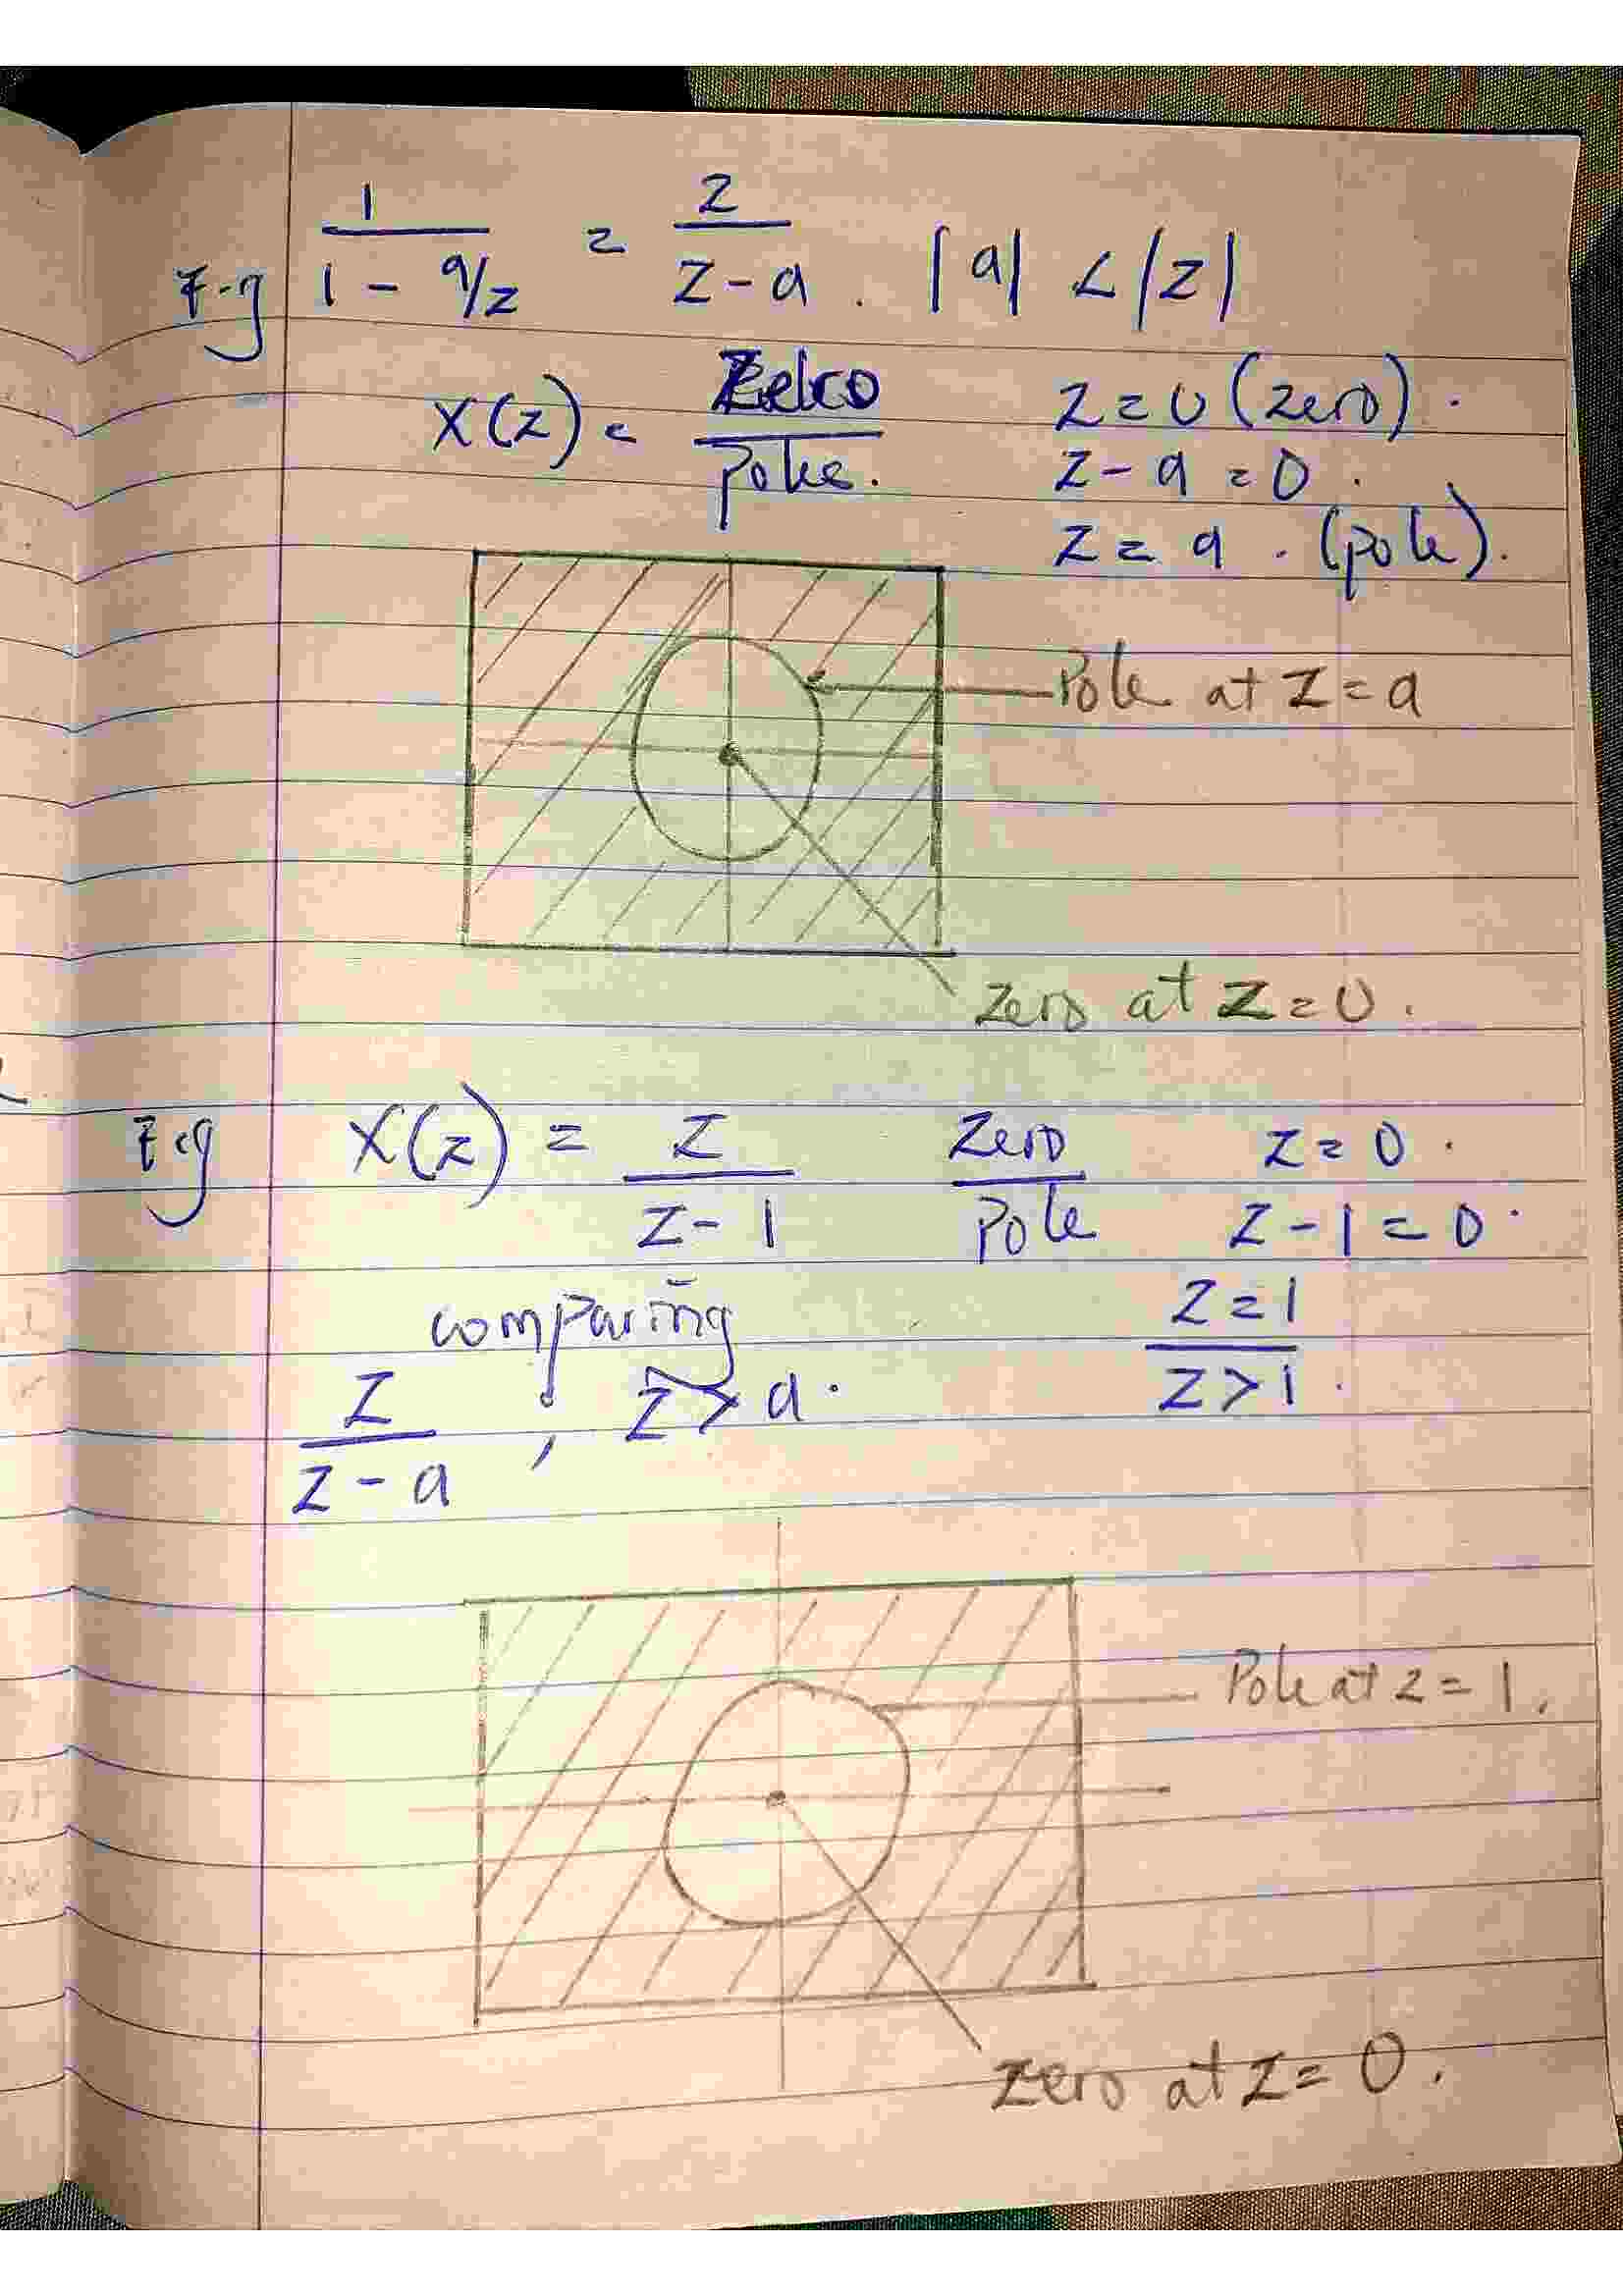 E.g 1/(1 - a/z) = z/(z - a) . |a| < |z|
X(z) = Zero/pole. z = 0 (zero).
z - a = 0.
z = a. (pole).
Pole at z = a
zero at z = 0.
E.g X(z) = z/(z - 1) Zero/Pole z = 0.
z - 1 = 0.
comparing z = 1
z/(z - a) , z > a. z > 1.
Pole at z = 1.
zero at z = 0.